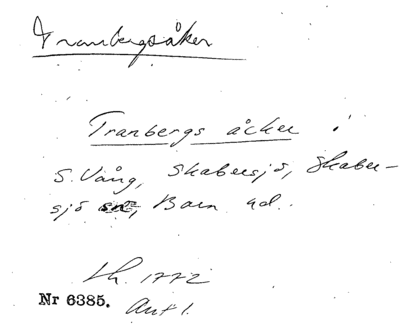 Tranbergsåker
Tranbergs åcker i
S. Vång, Skabersjö, Skaber-
sjö sn, Bara hd.
Lh. 1772
Nr 6385. Akt 1.